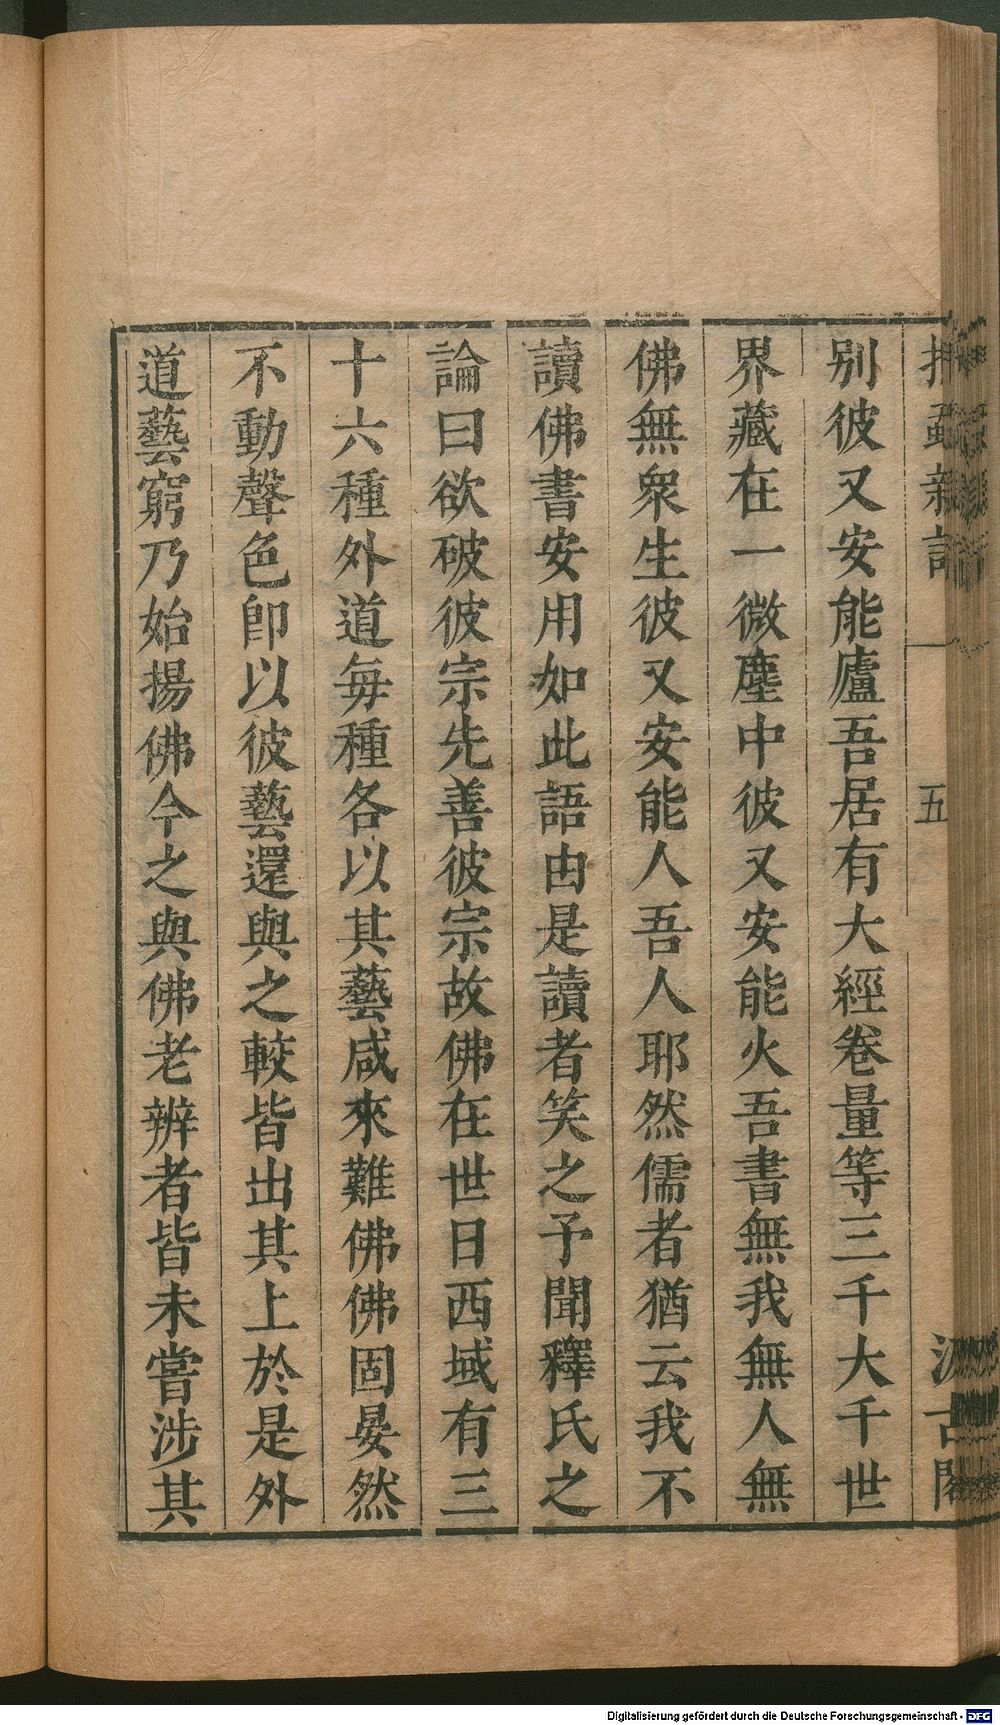 捫蝨新話 一 五 汲古閣
别彼又安能廬吾居有大經卷量等三千大千世
界藏在一微塵中彼又安能火吾書無我無人無
佛無衆生彼又安能人吾人耶然儒者猶云我不
讀佛書安用如此語由是讀者笑之予聞釋氏之
論曰欲破彼宗先善彼宗故佛在世日西域有三
十六種外道每種各以其藝咸來難佛佛固晏然
不動聲色卽以彼藝還與之較皆出其上於是外
道藝窮乃始揚佛今之與佛老辨者皆未嘗涉其
Digitalisierung gefördert durch die Deutsche Forschungsgemeinschaft - DFG